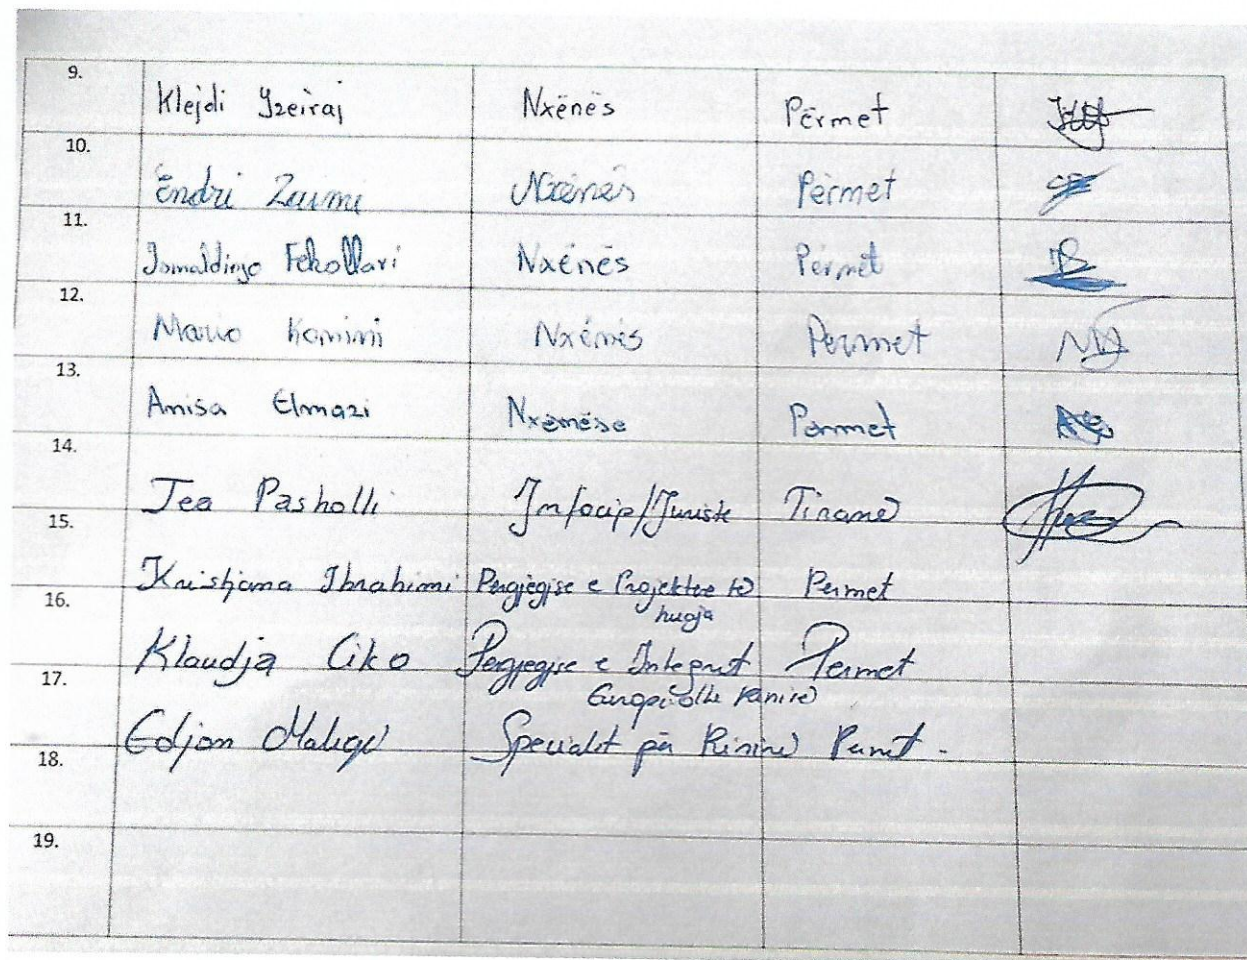 9. Klejdi Yzeiraj Nxënës Përmet
10. Endri Zaimi Nxënës Përmet
11. Fekollari Nxënës Përmet
12. Mario Komini Nxënës Permet
13. Anisa Elmazi Nxënëse Permet
14. Tea Pasholli Infocip/Juriste Tiranë
15. Kristjana Ibrahimi Pergjegjse e Projekteve të Permet
huaja
16. Klaudja Ciko Pergjegjse e Integrimit Permet
Europian dhe Rinisë
17. Edjon Maliqi Specialist për Rininë Permet.
18.
19.